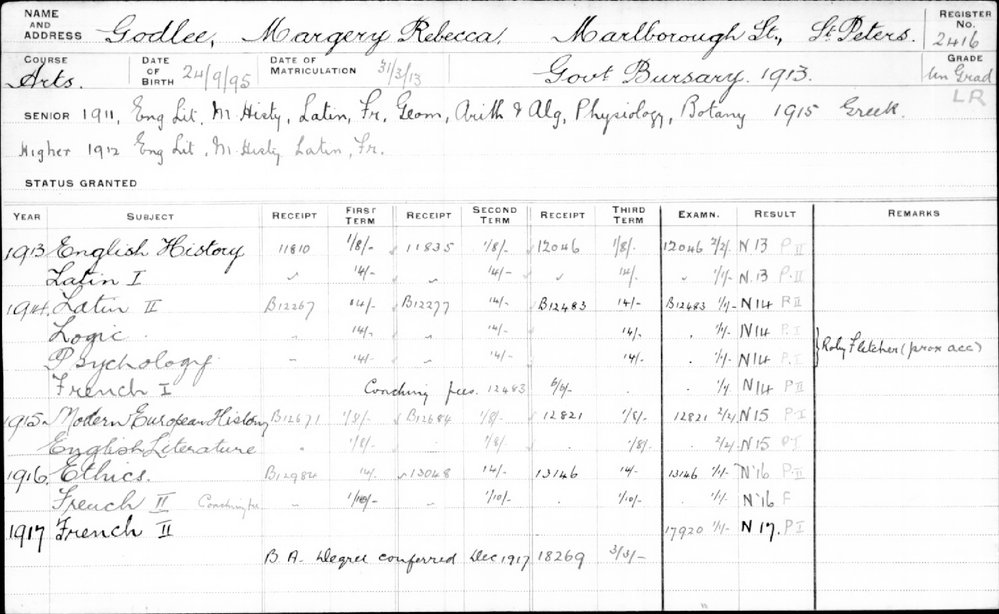 NAME AND ADDRESS Godlee, Margery Rebecca. Marlborough St., St. Peters. REGISTER No. 2416
COURSE Arts. DATE OF BIRTH 24/9/95 DATE OF MATRICULATION 31/3/13 Govt Bursary. 1913. GRADE Un Grad
LR
SENIOR 1911, Eng Lit. M Histy, Latin, Fr. Geom, Arith & Alg, Physiology, Botany 1915 Greek.
Higher 1912 Eng Lit, M. Histy Latin, Fr.
STATUS GRANTED
YEAR SUBJECT RECEIPT FIRST TERM RECEIPT SECOND TERM RECEIPT THIRD TERM EXAMN. RESULT REMARKS
1913 English History 11810 1/8/- 11835 1/8/- 12046 1/8/- 12046 2/2/- N 13 P II
Latin I " 14/- " 14/- " 14/- " 1/1/- N. 13 P. II
1914. Latin II B12267 14/- B12277 14/- B12483 14/- B12483 1/1/- N14 P II
Logic. 14/- " 14/- 14/- " 1/1/- N14 P. I
Psychology " 14/- 14/- 14/- " 1/1/- N14 P. I } Roby Fletcher (prox acc)
French I Coaching fees. 12483 6/6/- . . 1/1/- N14 P II
1915. Modern European History B12671 1/8/- B12684 1/8/- 12821 1/8/- 12821 2/2/- N15 P I
English Literature " 1/8/- 1/8/- . 1/8/- . 2/2/- N15 P I
1916. Ethics. B12984 14/- 13048 14/- 13146 14/- 13146 1/1/- N'16 P II
French II Coaching fee 1/10/- " 1/10/- " 1/10/- . 1/1/- N'16 F
1917 French II 17920 1/1/- N 17. P I
B A. Degree conferred Dec 1917 18269 3/3/-